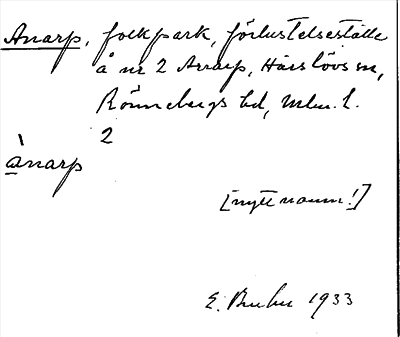 Anarp, folkpark, förlustelseställe
å nr 2 Anarp, Härslövs sn,
Rönnebergs hd, Mlm. l.
2
ànarp
[nytt namn!]
E. 1933